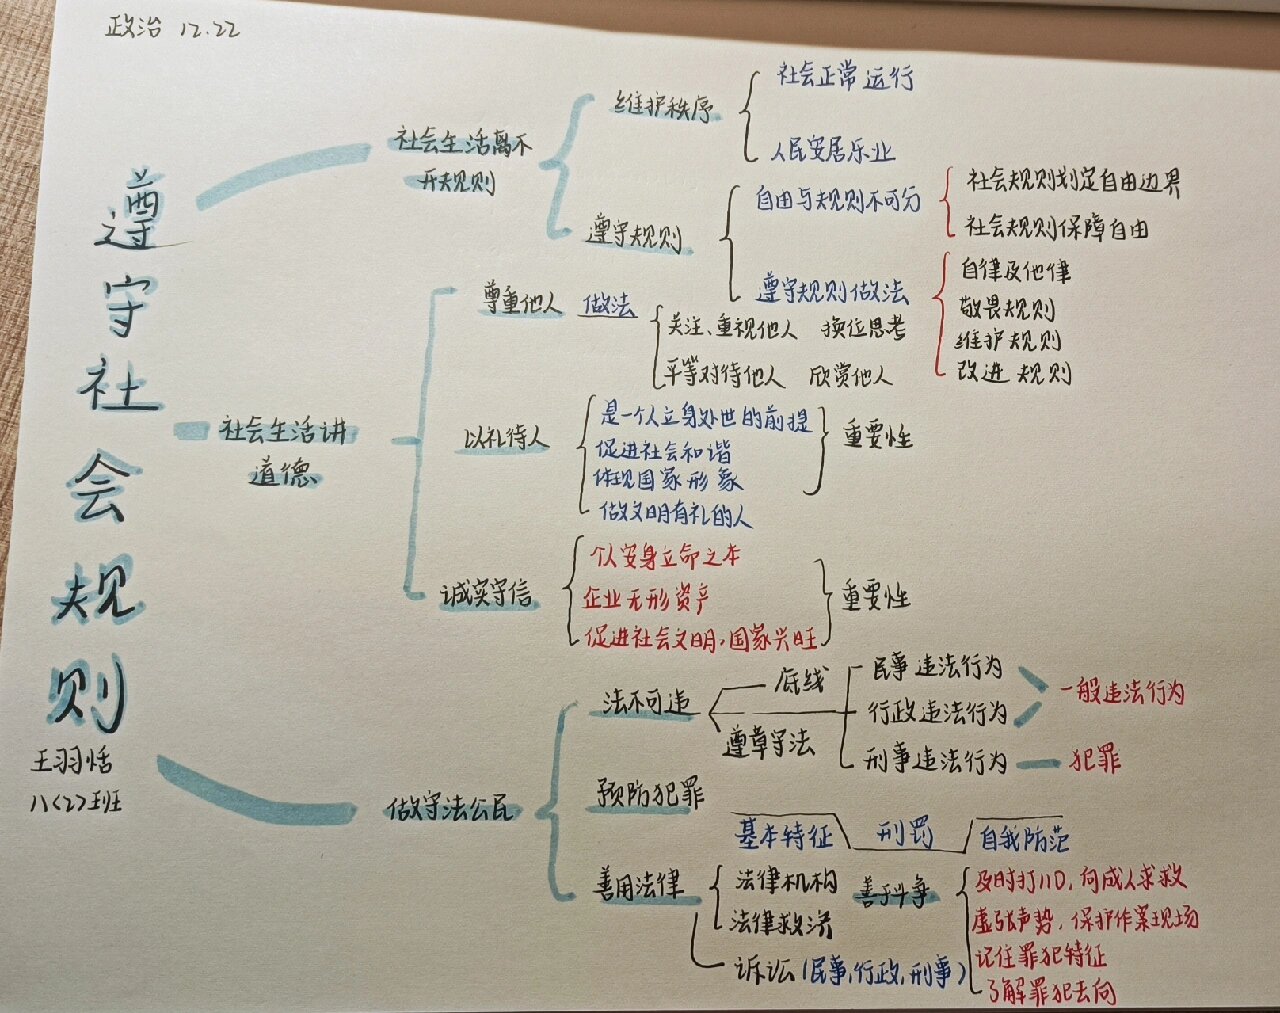 政治 12.22
遵守社会规则
王羽恬
八<2>班
社会生活离不
开规则
维护秩序
社会正常运行
人民安居乐业
遵守规则
自由与规则不可分
社会规则划定自由边界
社会规则保障自由
遵守规则做法
自律及他律
敬畏规则
维护规则
改进规则
社会生活讲
道德
尊重他人 做法
关注、重视他人 换位思考
平等对待他人 欣赏他人
以礼待人
是一个人立身处世的前提
促进社会和谐
体现国家形象
重要性
做文明有礼的人
诚实守信
个人安身立命之本
企业无形资产
促进社会文明,国家兴旺
重要性
做守法公民
法不可违
底线
遵章守法
民事违法行为
行政违法行为
一般违法行为
刑事违法行为
犯罪
预防犯罪
基本特征 刑罚 自我防范
善用法律
法律机构
法律救济
诉讼(民事,行政,刑事)
善于斗争
及时打110,向成人求救
虚张声势,保护作案现场
记住罪犯特征
了解罪犯去向